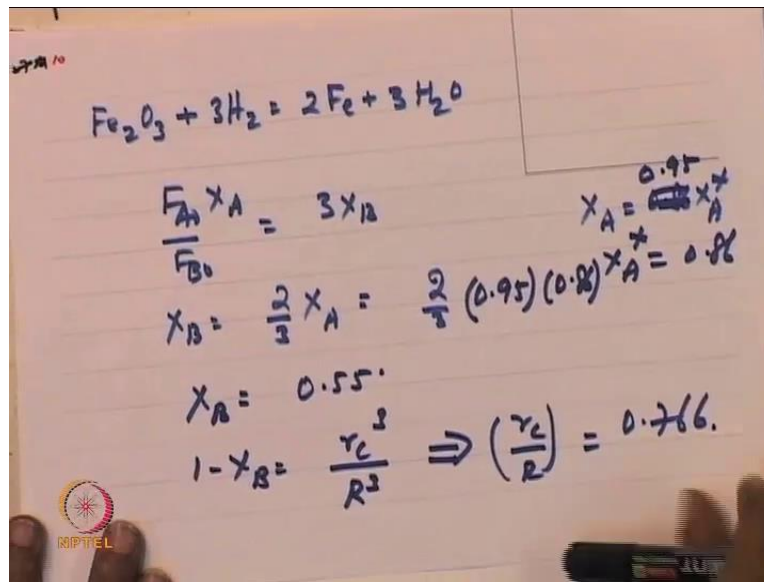 Fe₂O₃ + 3H₂ = 2Fe + 3H₂O
F_A0 X_A / F_B0 = 3X_B
0.95
X_A = X_A*
X_B = 2/3 X_A = 2/3 (0.95)(0.86) X_A* = 0.86
X_B = 0.55.
1 - X_B = r_c³ / R³ ⇒ (r_c / R) = 0.766.
NPTEL